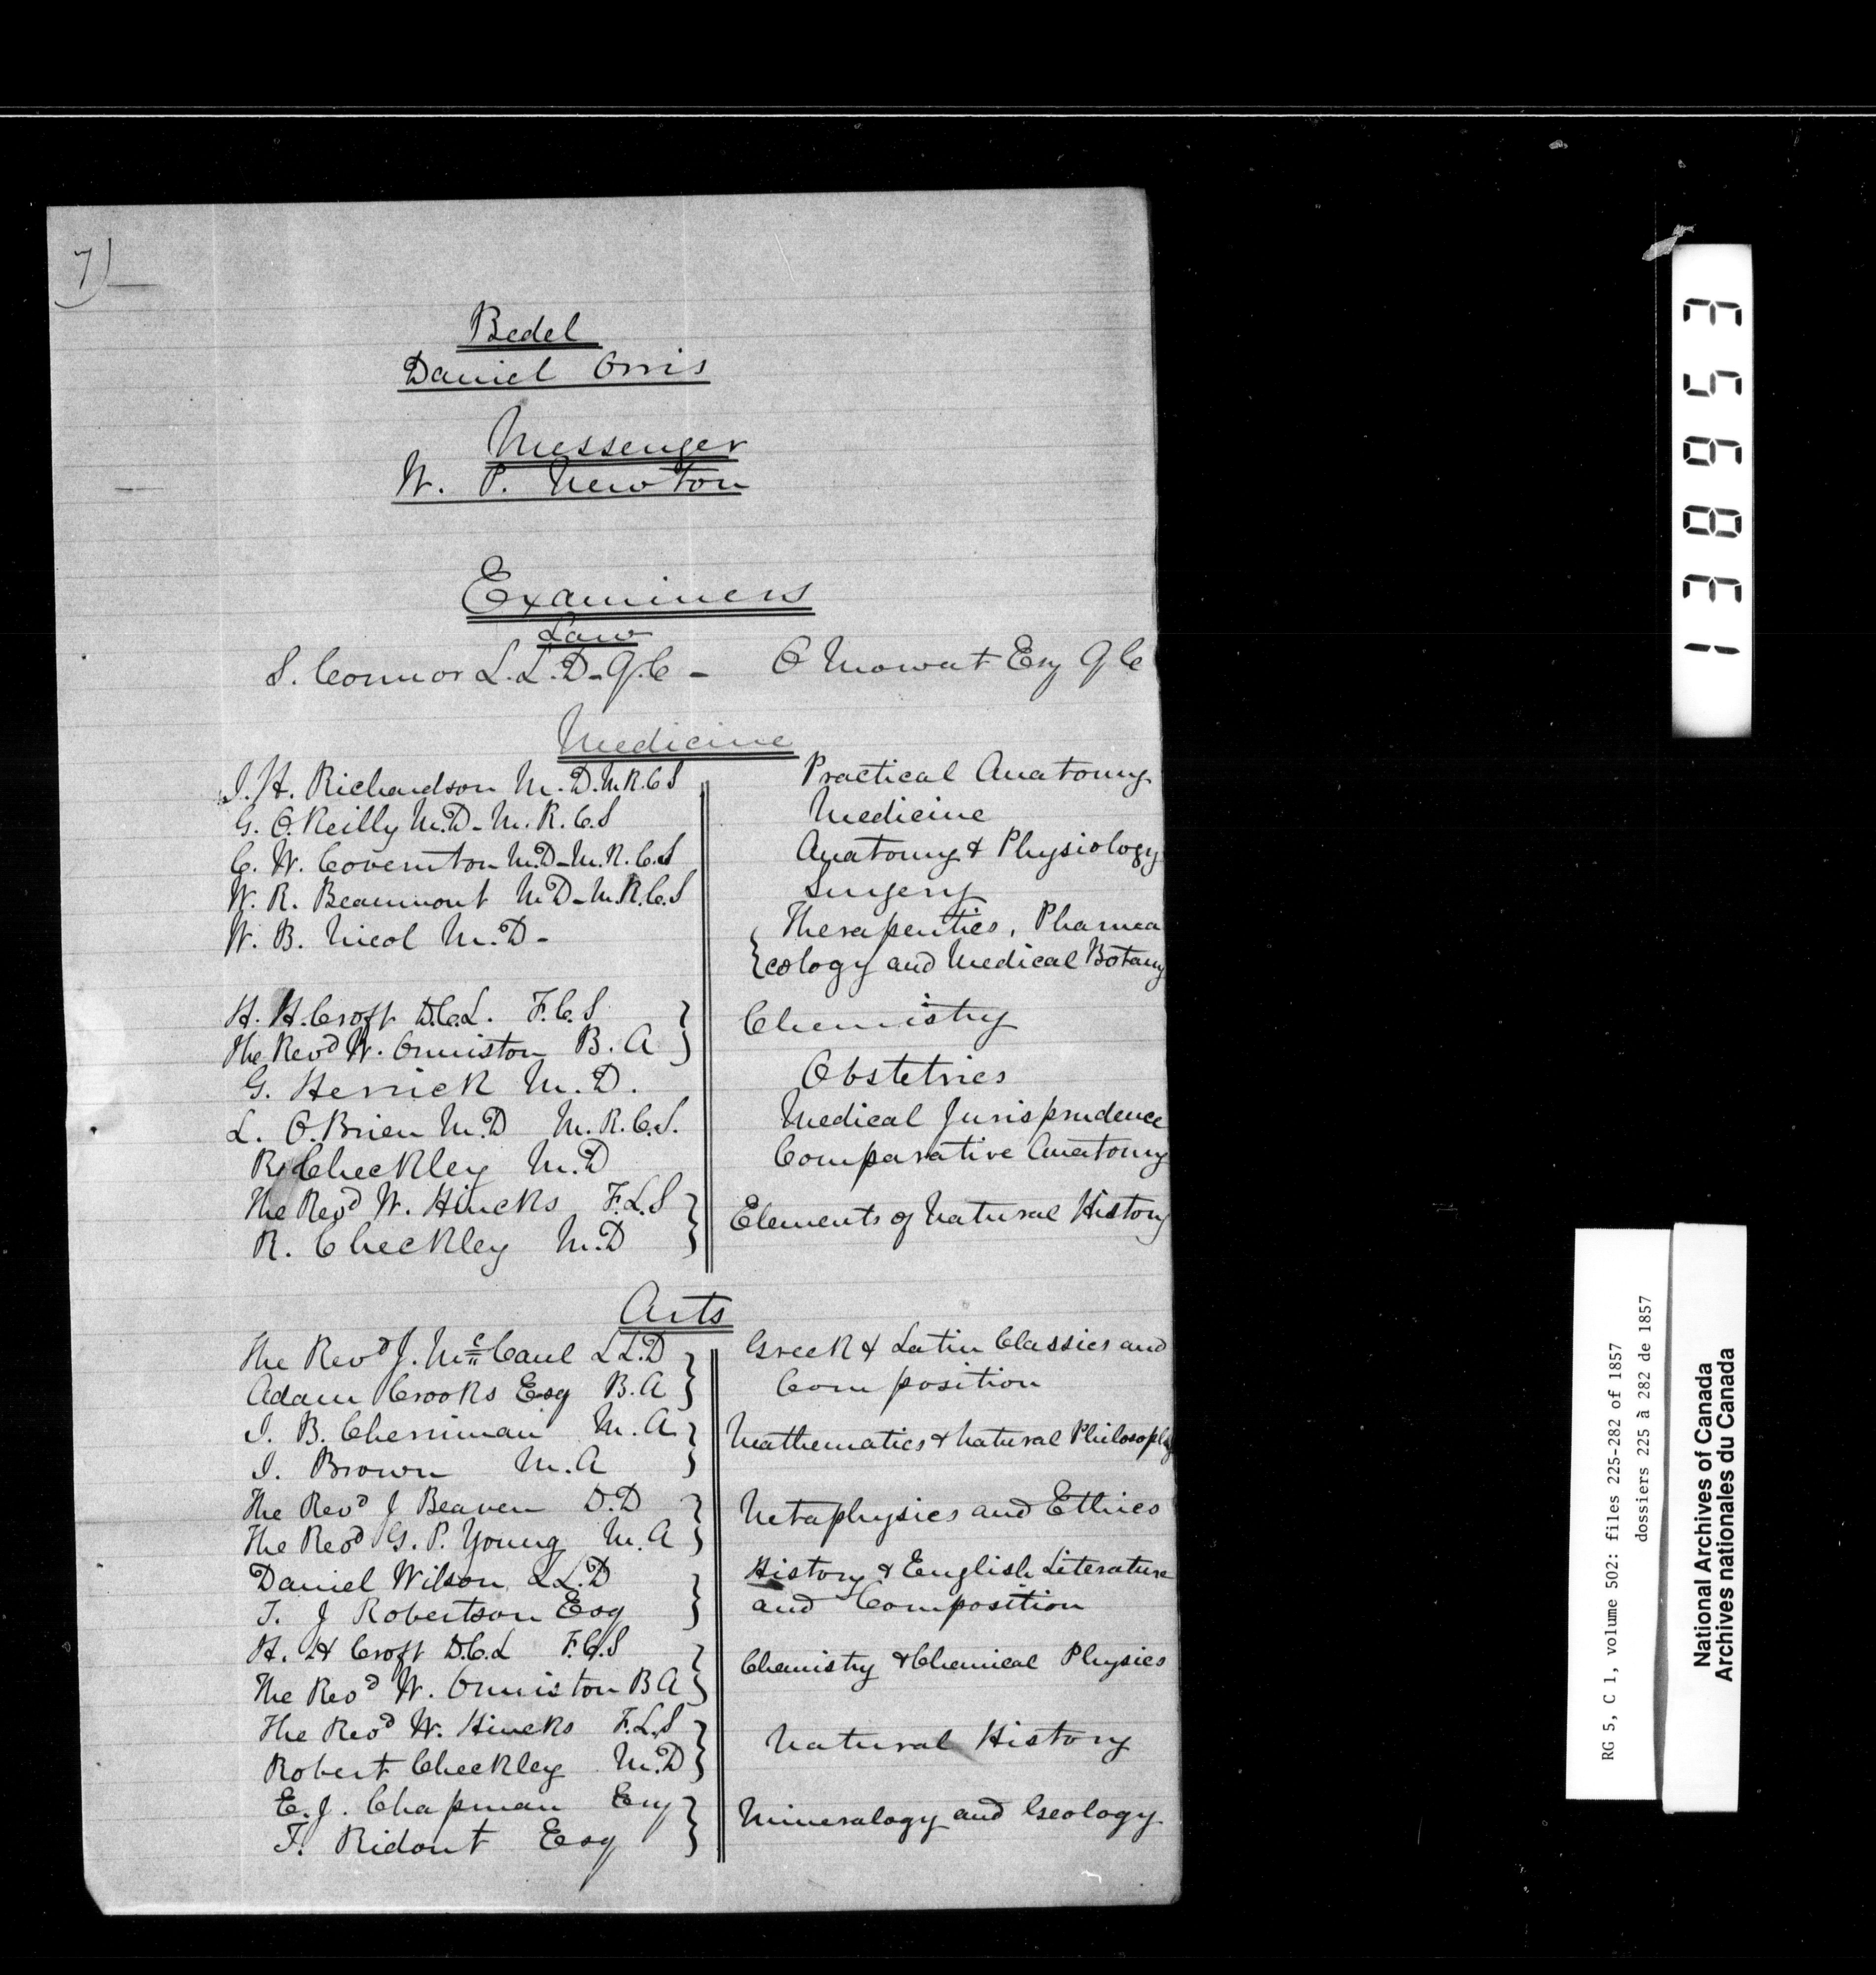 7)
Bedel
Daniel Orris
Messenger
W. P. Newton
Examiners
Law
S. Connor L.L.D-Q.C - O Mowat Esq Q C
Medicine
J. H. Richardson M.D. M.R.C S Practical Anatomy
G. O.Reilly M.D- M.R.C.S Medicine
C. W. Covernton M.D-M.R.C.S Anatomy & Physiology
W. R. Beaumont M D-M.R.C.S Surgery
W. B. Nicol M.D- Therapeutics, Pharma
cology and Medical Botany
H. H. Croft D.C.L. F.C.S Chemistry
The Revd W. Ormiston B. A
G. Herrick M.D. Obstetrics
L. O.Brien M.D M.R.C.S. Medical Jurisprudence
R. Checkley M.D Comparative Anatomy
The Revd W. Hincks F.L.S Elements of Natural History
R. Checkley M.D
Arts
The Revd J. McCaul L L.D Greek & Latin Classics and
Adam Crooks Esq B.A Composition
J. B. Cherriman M.A. Mathematics & Natural Philosophy
J. Brown M.A
The Revd J Beaven D.D Metaphysics and Ethics
The Revd G. P. Young M.A
Daniel Wilson L L.D History & English Literature
T. J Robertson Esq and Composition
H. H Croft D.C.L F.C.S Chemistry & Chemical Physics
The Revd W. Ormiston B A
The Revd W. Hincks F.L.S Natural History
Robert Checkley M.D
E. J. Chapman Esq Mineralogy and Geology
T. Ridout Esq
138953
RG 5, C 1, volume 502: files 225-282 of 1857
dossiers 225 à 282 de 1857
National Archives of Canada
Archives nationales du Canada